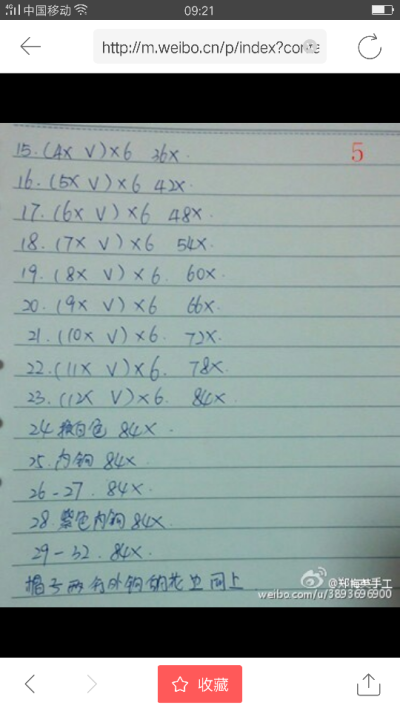 4G 中国移动 09:21
http://m.weibo.cn/p/index?conta
5
15.(4X V)X6 36X.
16.(5X V)X6 42X.
17.(6X V)X6 48X.
18.(7X V)X6 54X.
19.(8X V)X6. 60X.
20.(9X V)X6 66X.
21.(10X V)X6. 72X.
22.(11X V)X6. 78X.
23.(12X V)X6. 84X.
24.换白色 84X.
25.内钩 84X.
26-27. 84X.
28.紫色内钩 84X.
29-32. 84X.
帽子两行外钩
同上
@郑梅英手工
weibo.com/u/3893696900
收藏